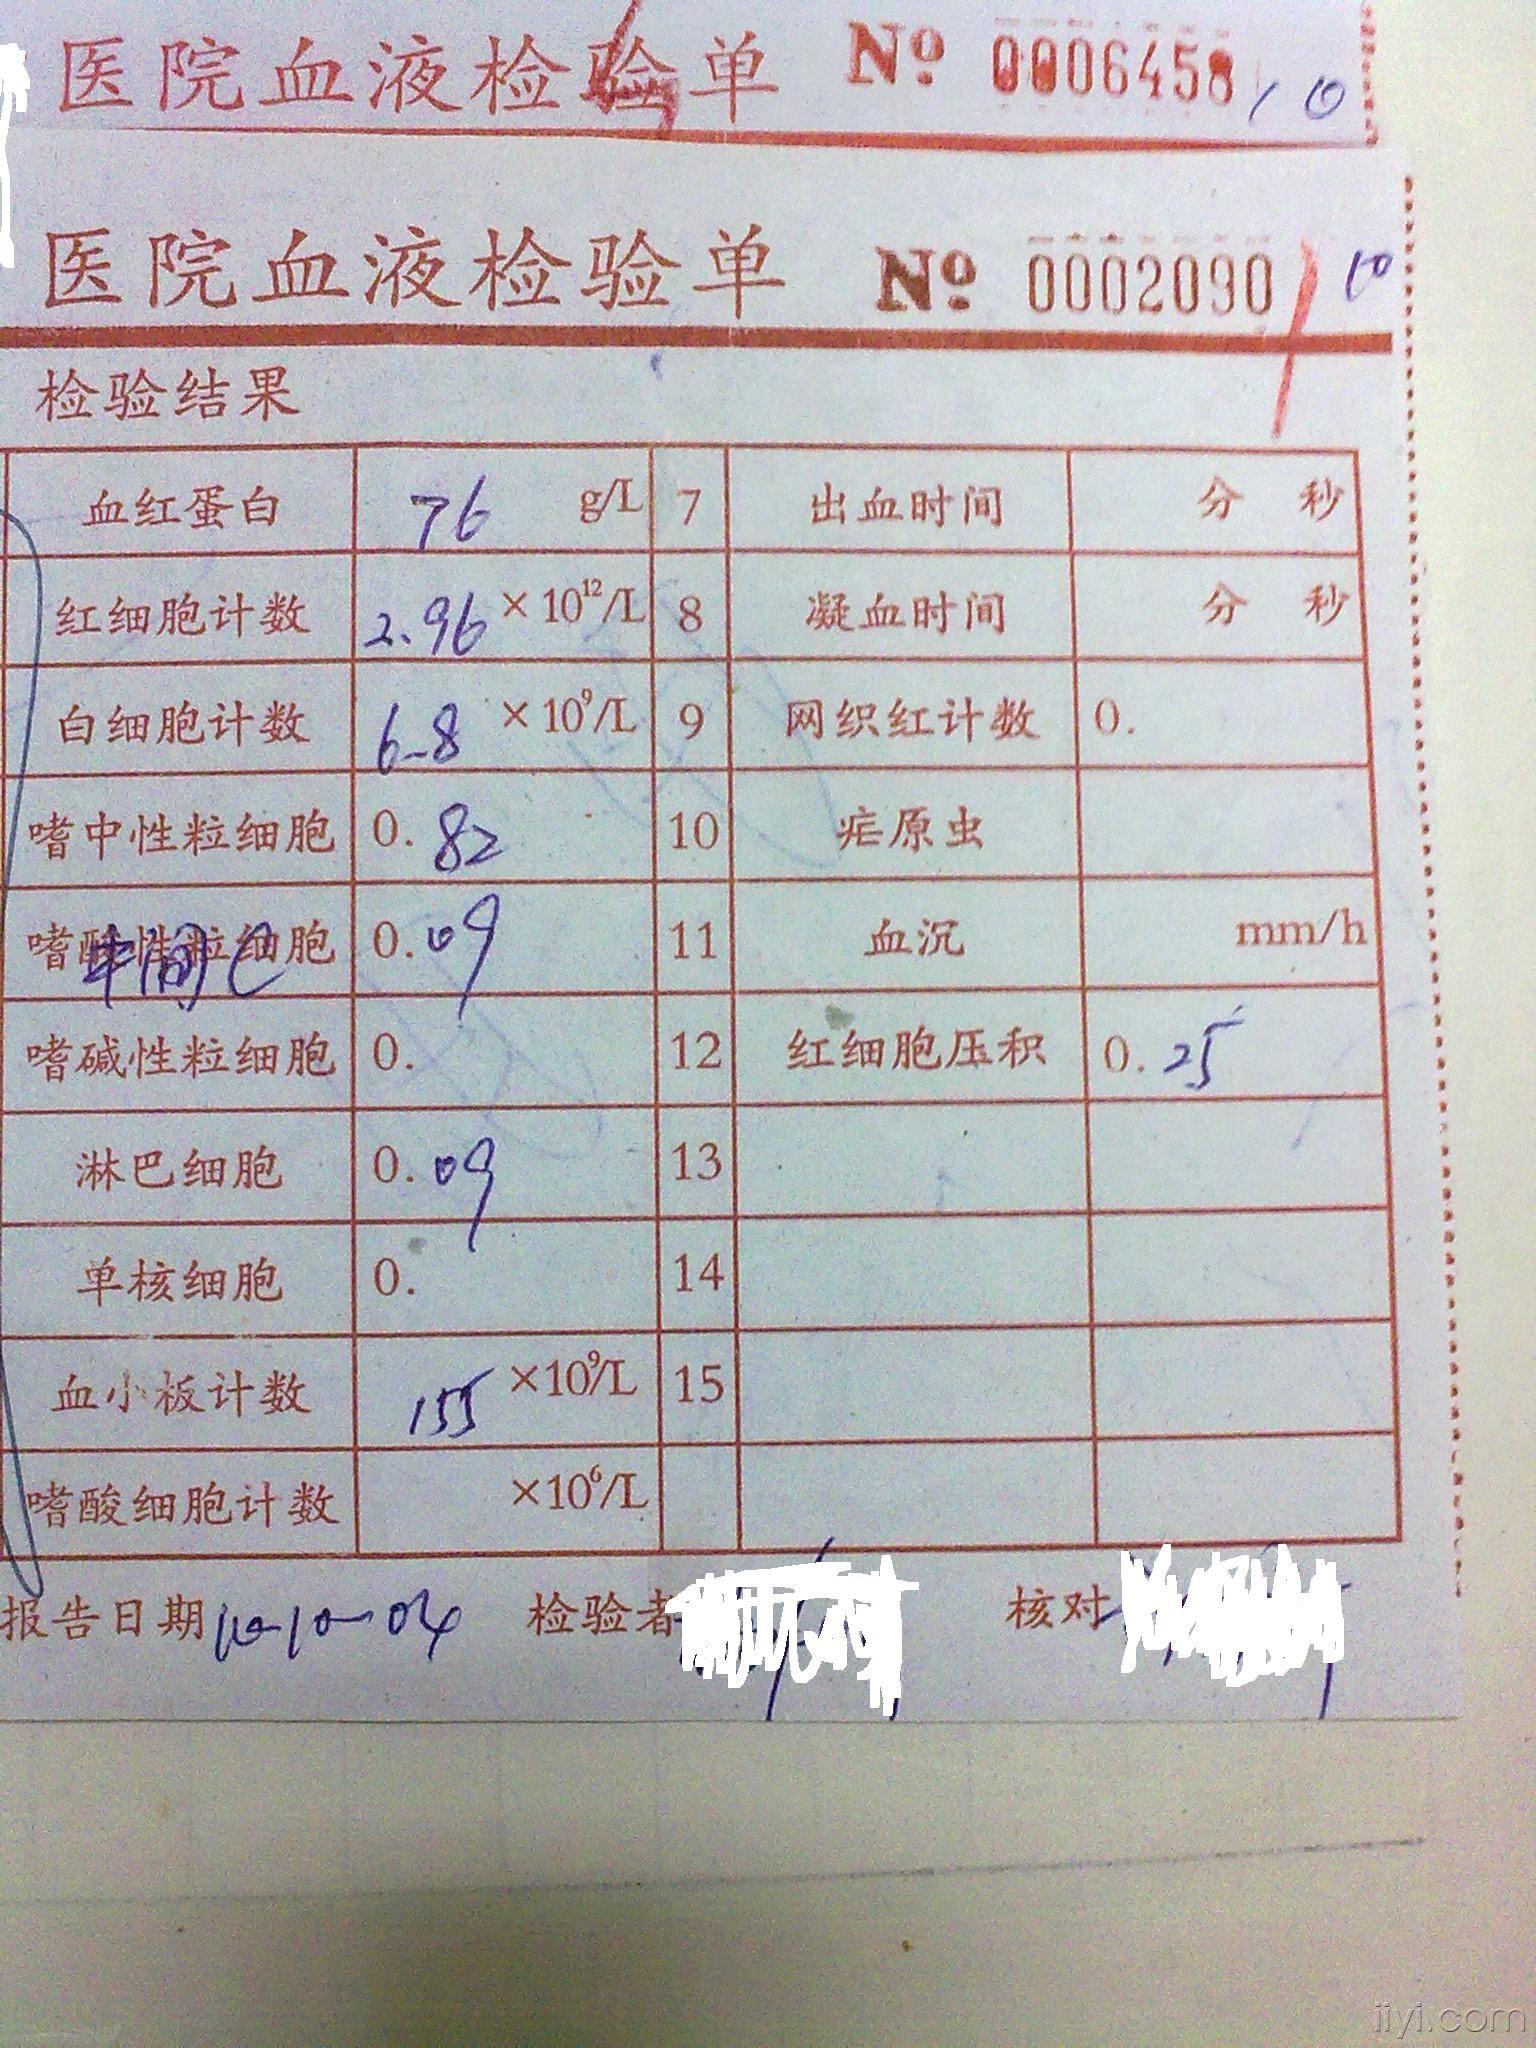 医院血液检验单 № 0006458 10
医院血液检验单 № 0002090 10
检验结果
血红蛋白 76 g/L 7 出血时间 分 秒
红细胞计数 2.96 ×10¹²/L 8 凝血时间 分 秒
白细胞计数 6.8 ×10⁹/L 9 网织红计数 0.
嗜中性粒细胞 0.82 10 疟原虫
嗜酸性粒细胞 中间C 0.09 11 血沉 mm/h
嗜碱性粒细胞 0. 12 红细胞压积 0.25
淋巴细胞 0.09 13
单核细胞 0. 14
血小板计数 155 ×10⁹/L 15
嗜酸细胞计数 ×10⁶/L
报告日期 10-10-04 检验者 核对
iiyi.com